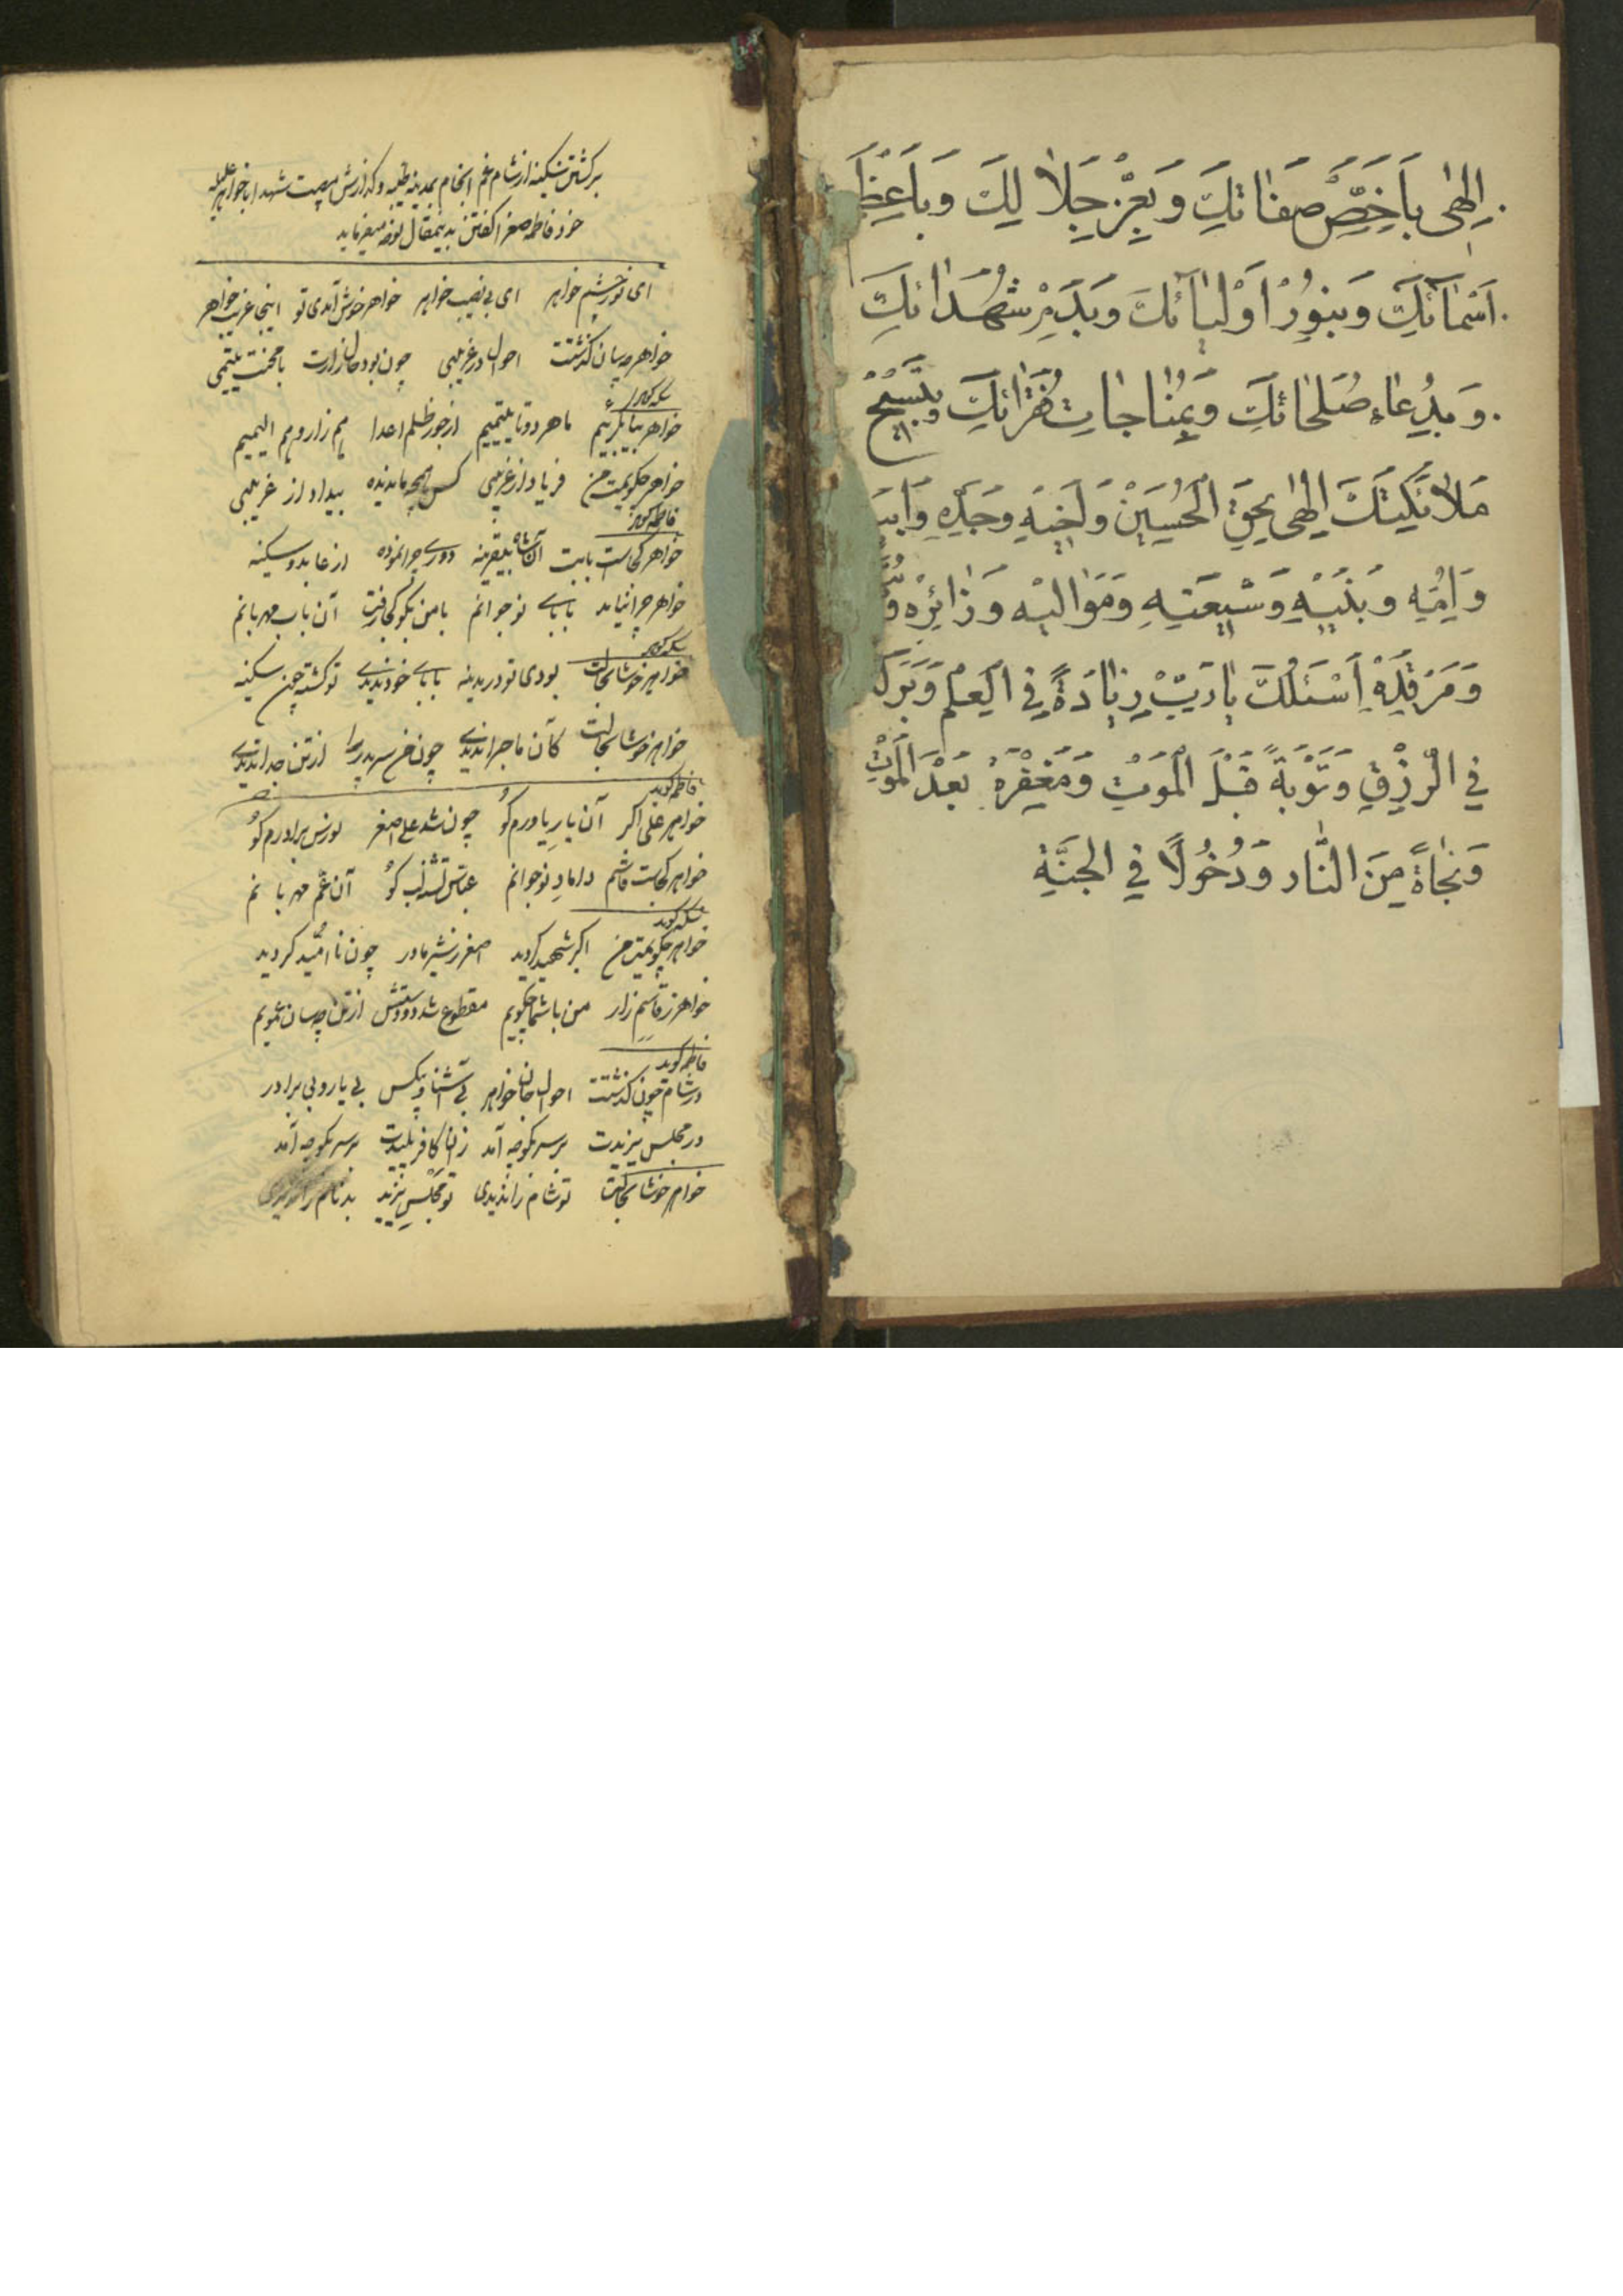 الهی باخص صفاتك وبعز جلالك وباعظم
اسمائك وبنور اولیائك وبدم شهدائك
وبدعاء صلحائك وبمناجات فقرائك وبتسبیح
ملائكتك الهی بحق الحسین واخیه وجده وابیه
وامه وبنیه وشیعته وموالیه وزائره
ومرقده اسئلك یا رب زیادة فی العلم وبركة
فی الرزق وتوبة قبل الموت ومغفرة بعد الموت
ونجاة من النار ودخولا فی الجنة
برگشتن سکینه از شام غم انجام بمدینه طیبه و گذارش مصیبت شهدا با خواهر علیله
خود فاطمه صغرا گفتن بدینمقال نوحه میفرماید
ای نور چشم خواهر ای بی نصیب خواهر خواهر خوش آمدی تو اینجا غریب خواهر
خواهر چسان گذشتت احوال در غریبی چون بود حال زارت با محنت یتیمی
سکینه گوید
خواهر بیا بگرییم ما هر دو تا یتیمیم از جور ظلم اعدا هم زار و هم الیمیم
خواهر چگویمت من فریاد از غریبی کس همچو ما ندیده بیداد از غریبی
فاطمه گوید
خواهر کجاست بابت آن شاه بیقرینه دوری چرا نموده از عابد و سکینه
خواهر چرا نیامد بابای نوجوانم با من بگو کجا رفت آن باب مهربانم
سکینه گوید
خواهر خوشا بحالت بودی تو در مدینه بابای خود ندیدی تو کشته چون سکینه
خواهر خوشا بحالت کآن ماجرا ندیدی چون من سر پدر را از تن جدا ندیدی
فاطمه گوید
خواهر علی اکبر آن یار یاورم کو چون شد علی اصغر نورس برادرم کو
خواهر کجاست قاسم داماد نوجوانم عباس تشنه لب کو آن عم مهربانم
سکینه گوید
خواهر چگویمت من اکبر شهید گردید اصغر ز شیر مادر چون ناامید گردید
خواهر ز قاسم زار من با شما چگویم مقطوع شد دو دستش از تن چسان بگویم
فاطمه گوید
در شام چون گذشتت احوال جان خواهر بی آشنا و بیکس بی یار و بی برادر
در مجلس یزیدت بر سر بگو چه آمد زان کافر پلیدت بر سر بگو چه آمد
خواهر خوشا بحالت تو شام را ندیدی تو مجلس یزید بدنام را ندیدی